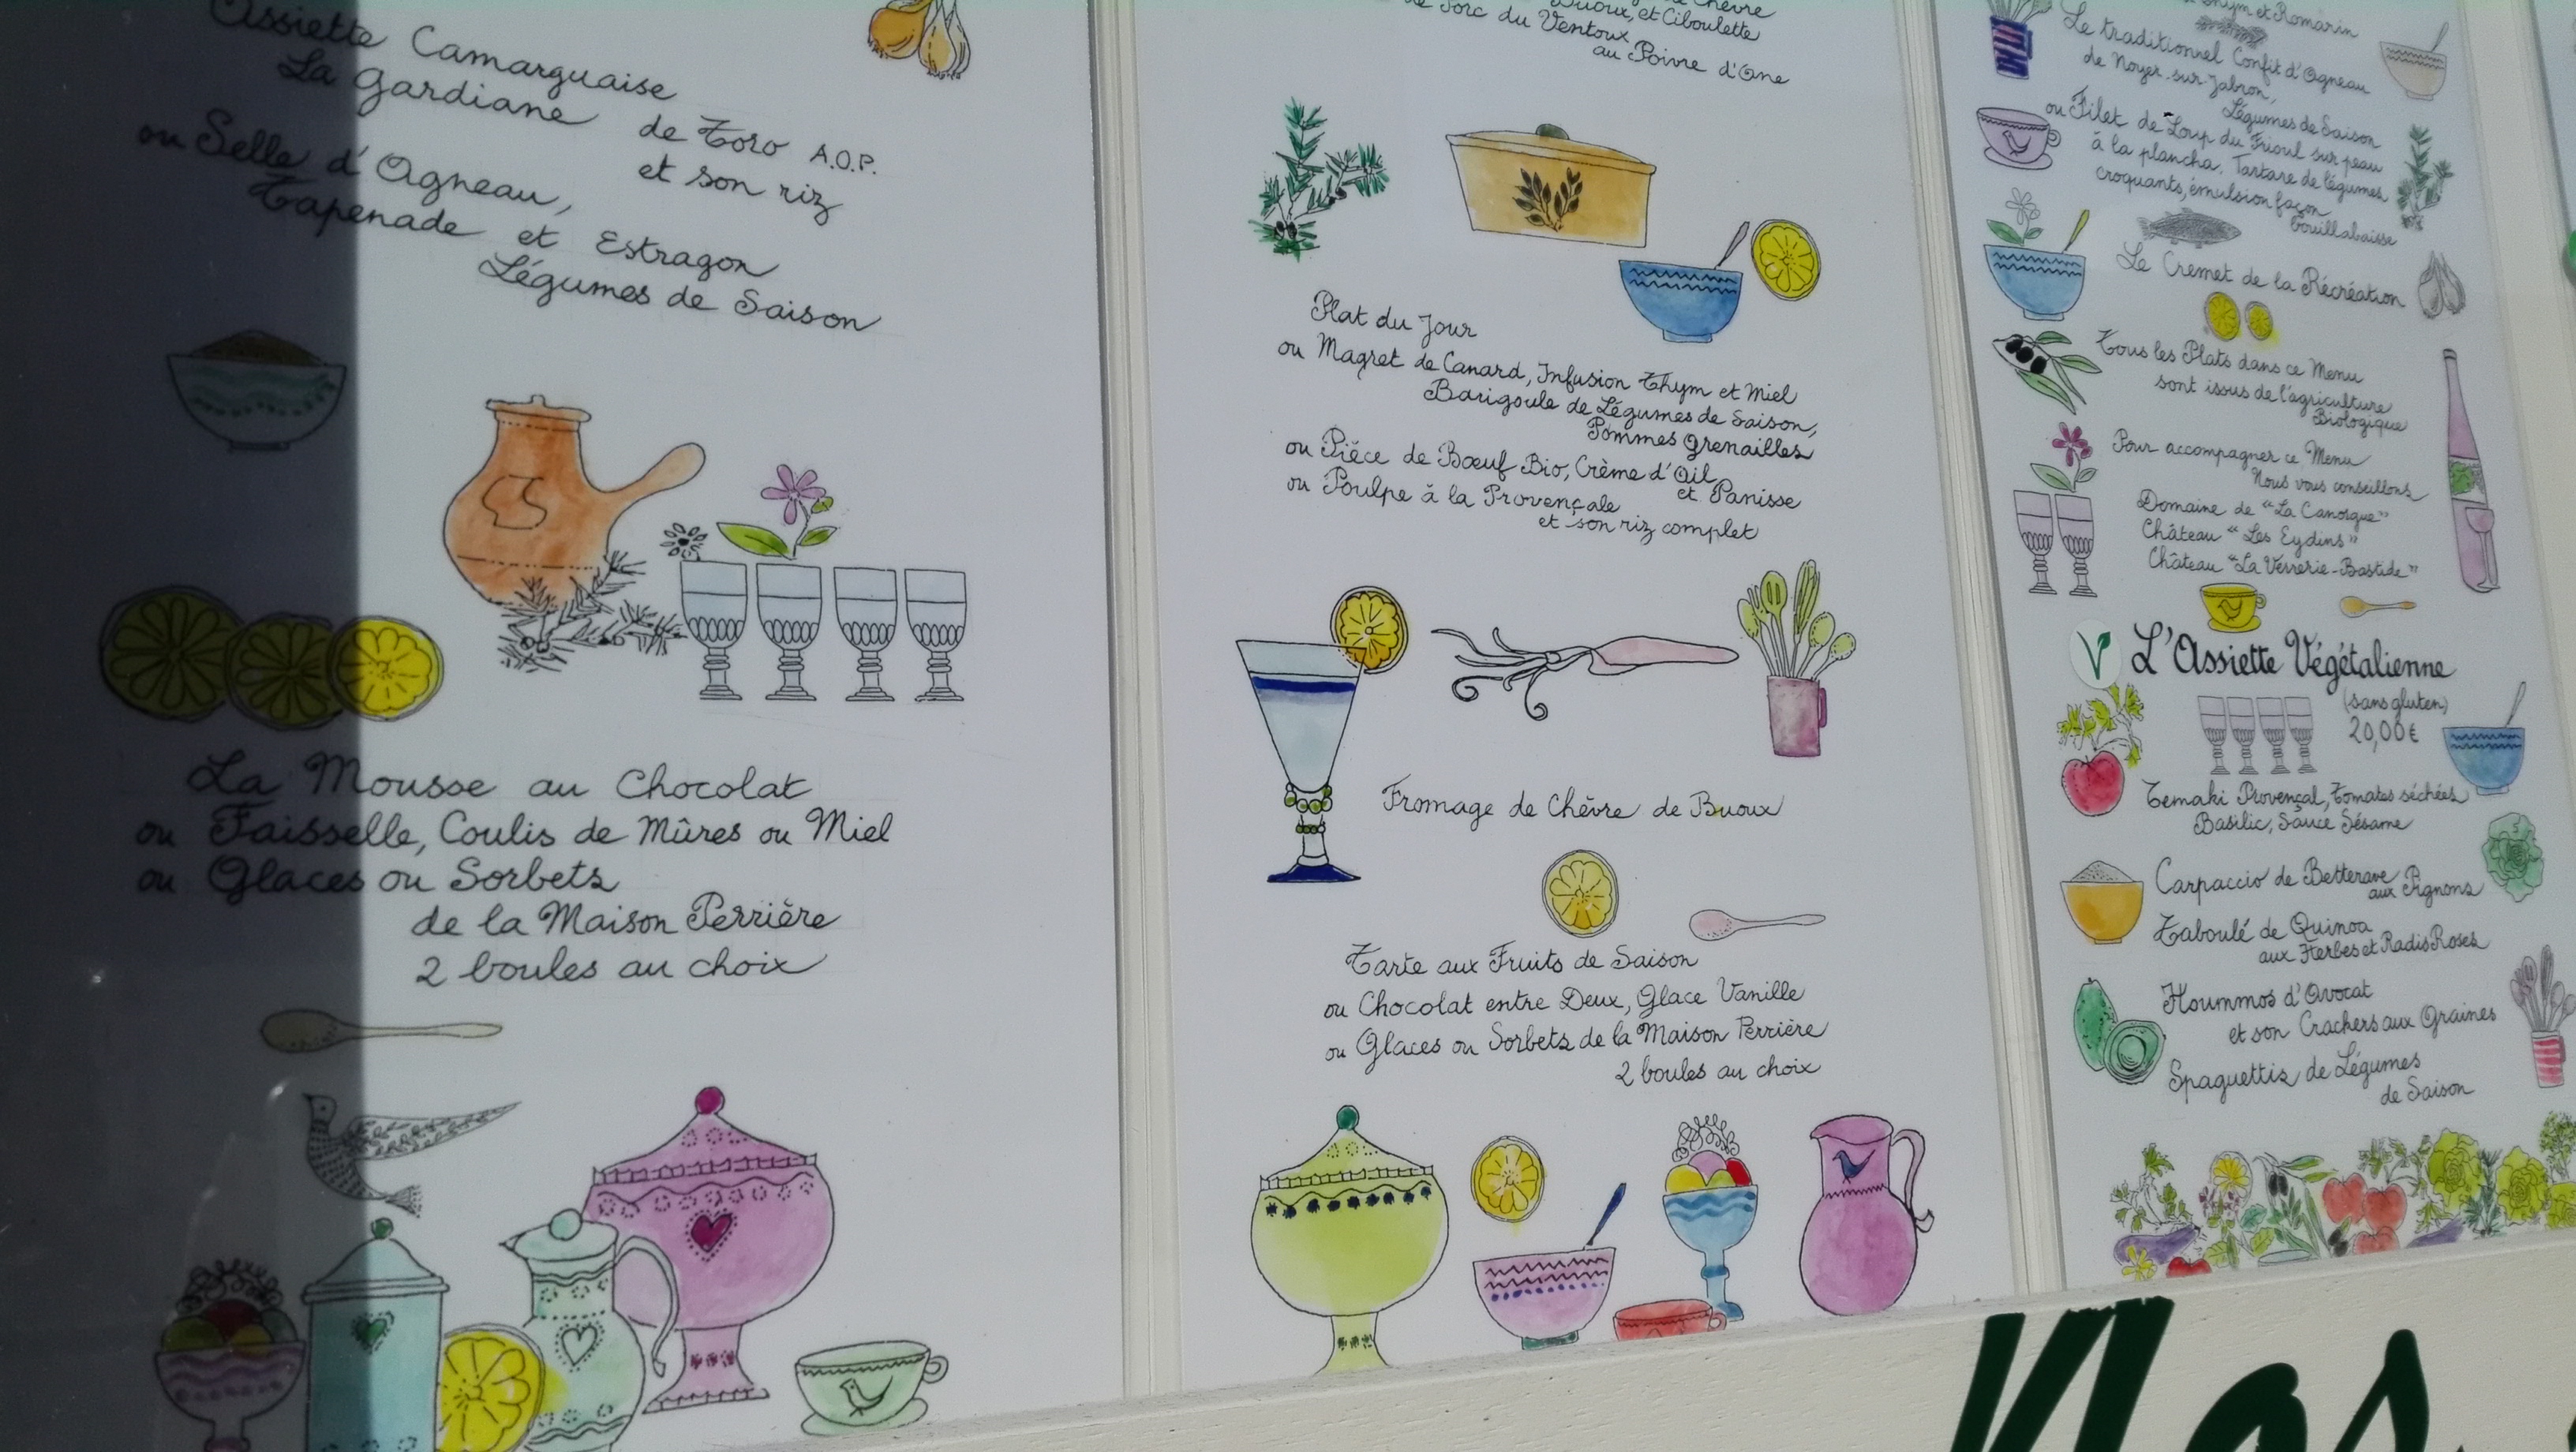 Assiette Camarguaise
La Gardiane de Toro A.O.P.
et son riz
ou Selle d'Agneau,
Tapenade et Estragon
Légumes de Saison
La Mousse au Chocolat
ou Faisselle, Coulis de Mûres ou Miel
ou Glaces ou Sorbets
de la Maison Perrière
2 boules au choix
Chèvre
et Ciboulette
de Porc du Ventoux
au Poivre d'Ane
Plat du Jour
ou Magret de Canard, Infusion Thym et Miel
Barigoule de Légumes de Saison,
Pommes Grenailles
ou Pièce de Bœuf Bio, Crème d'Ail
et Panisse
ou Poulpe à la Provençale
et son riz complet
Fromage de Chèvre de Buoux
Tarte aux Fruits de Saison
ou Chocolat entre Deux, Glace Vanille
ou Glaces ou Sorbets de la Maison Perrière
2 boules au choix
Thym et Romarin
Le traditionnel Confit d'Agneau
de Noyer-sur-Jabron,
Légumes de Saison
ou Filet de Loup du Frioul sur peau
à la plancha, Tartare de légumes
croquants, émulsion façon
bouillabaisse
Le Cremet de la Récréation
Tous les Plats dans ce Menu
sont issus de l'agriculture
Biologique
Pour accompagner ce Menu
Nous vous conseillons
Domaine de "La Canorgue"
Château "Les Eydins"
Château "La Verrerie-Bastide"
V L'Assiette Végétalienne
(sans gluten)
20,00€
Temaki Provençal, Tomates séchées
Basilic, Sauce Sésame
Carpaccio de Betterave
aux Pignons
Taboulé de Quinoa
aux Herbes et Radis Roses
Hoummos d'Avocat
et son Crackers aux Graines
Spaguettis de Légumes
de Saison
Nos